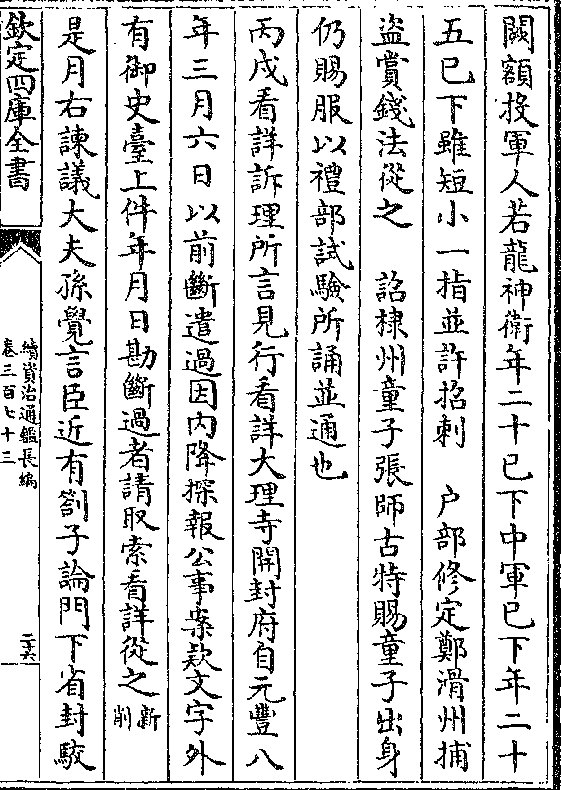 闕額投軍人若龍神衛年二十已下中軍已下年二十
五已下雖短小一指並許招刺　户部修定鄭滑州捕
盗賞錢法從之　詔棣州童子張師古特賜童子出身
仍賜服以禮部試驗所誦並通也
丙戌看詳訴理所言見行看詳大理寺開封府自元豐八
年三月六日以前斷遣過因内降探報公事案款文字外
有御史臺上件年月日勘斷過者請取索看詳從之新削
是月右諫議大夫孫覺言臣近有劄子論門下省封駮
欽定四庫全書
續資治通鑑長編
卷三百七十三
二六